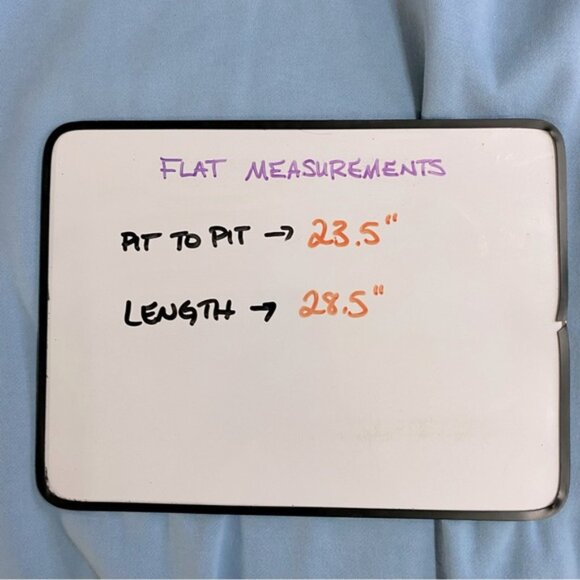 FLAT MEASUREMENTS
PIT TO PIT → 23.5"
LENGTH → 28.5"